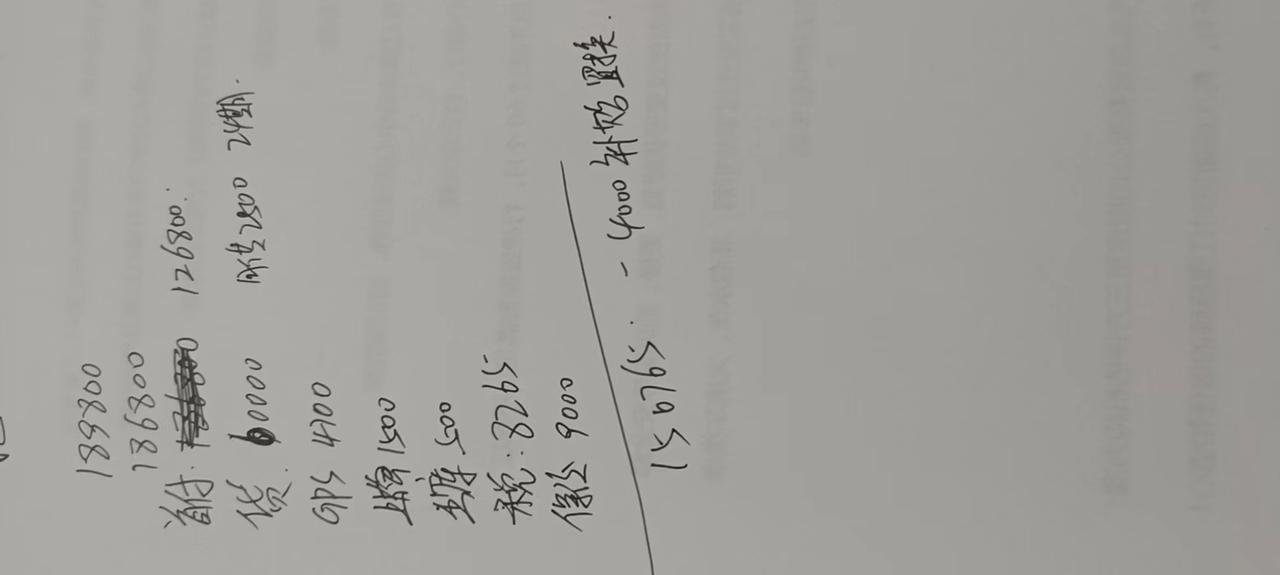 189800
186800
首付. 126800.
贷. 60000 月供2500 24期.
GPS 4700
上牌 1500
出库 500
税: 8265
保险 9000
150765. -4000 补贴置换.